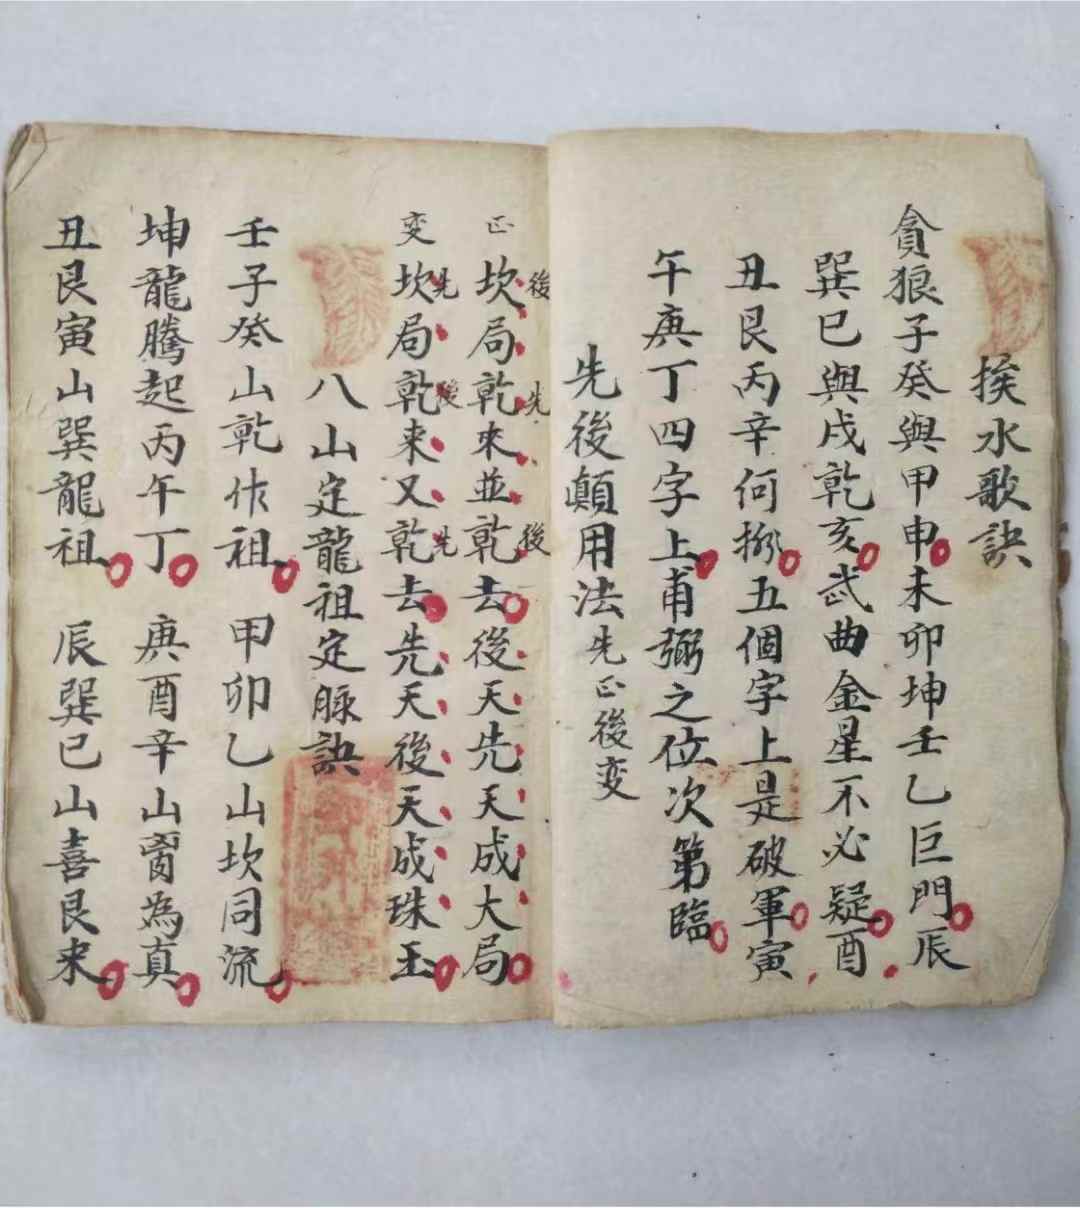 挨水歌訣
貪狼子癸與甲申未卯坤壬乙巨門辰
巽巳與戌乾亥武曲金星不必疑酉
丑艮丙辛何擬五個字上是破軍寅
午庚丁四字上甫弼之位次第臨
先後顛用法先正後变
正坎局乾來並乾去後天先天成大局
後先後
变坎局乾来又乾去先天後天成珠玉
先後先
八山定龍祖定脉訣
壬子癸山乾作祖甲卯乙山坎同流
坤龍騰起丙午丁庚酉辛山為真
丑艮寅山巽龍祖辰巽巳山喜艮来